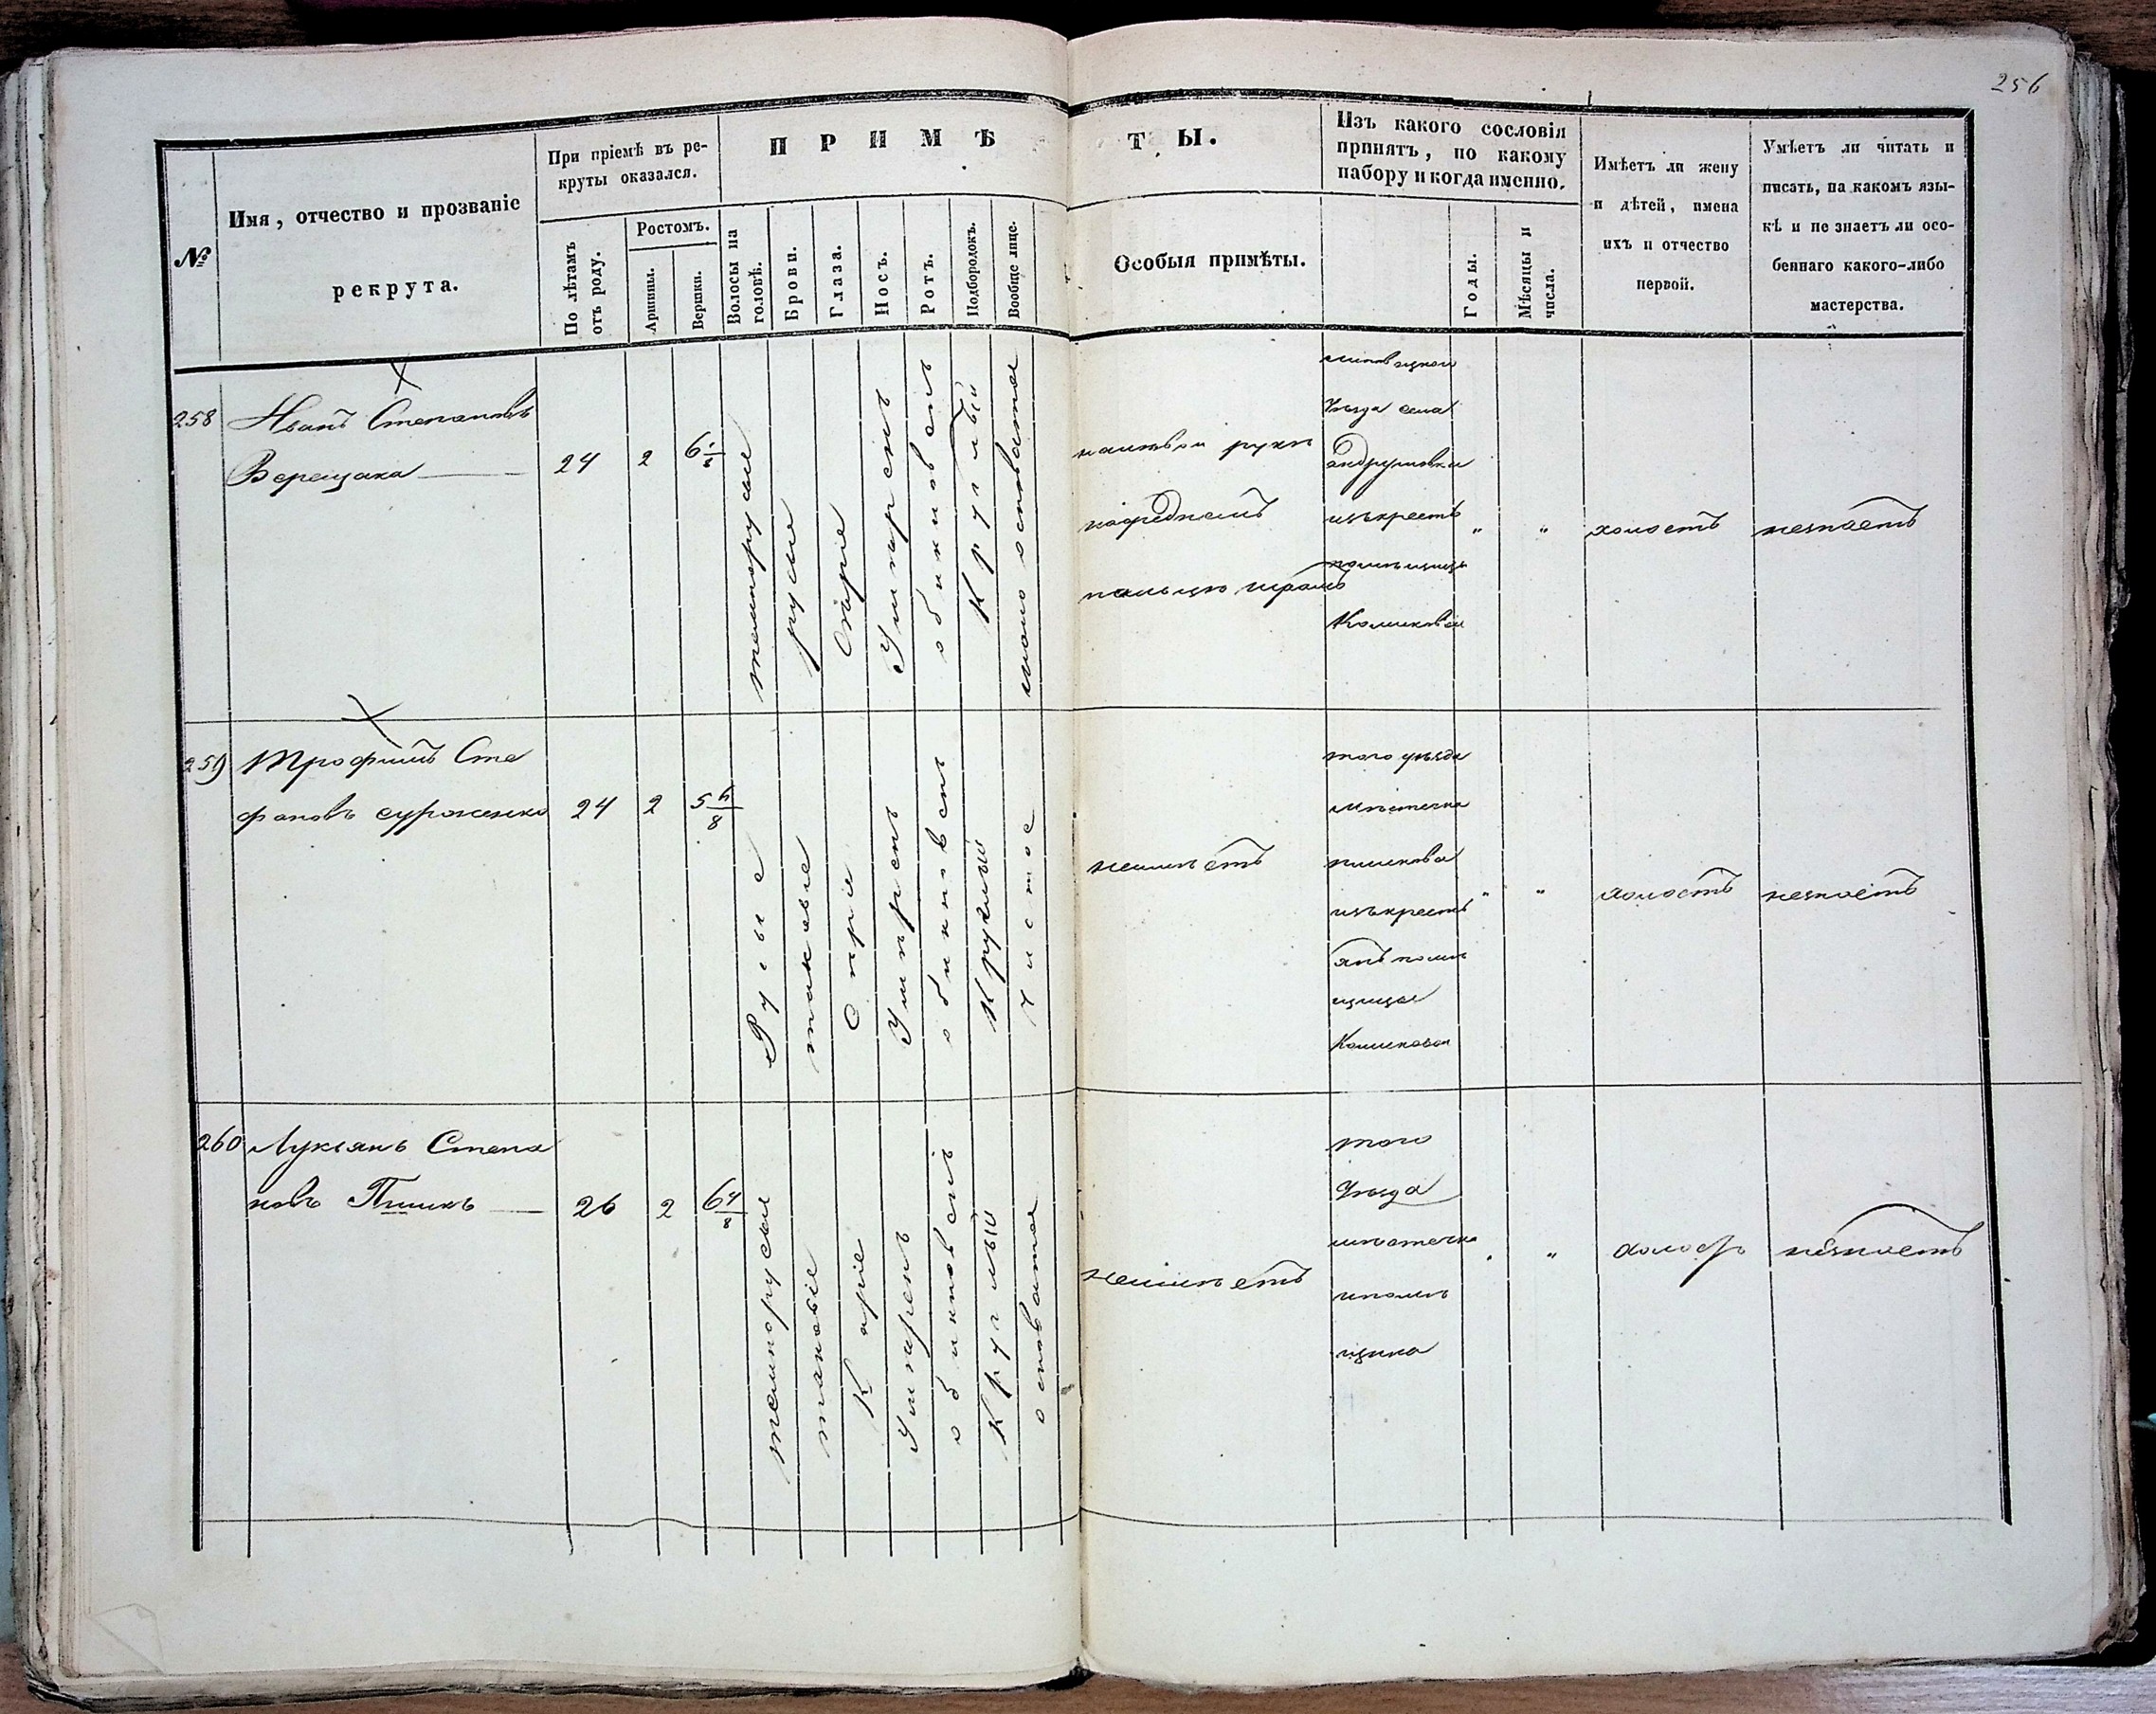 256
№
Имя, отчество и прозваніе
рекрута.
При пріемѣ въ ре-
круты оказался.
По лѣтамъ
отъ роду.
Ростомъ.
Аршины.
Вершки.
ПРИМѢ
ТЫ.
Волосы на
головѣ.
Брови.
Глаза.
Носъ.
Ротъ.
Подбородокъ.
Вообще лице.
Особыя примѣты.
Изъ какого сословія
принятъ, по какому
набору и когда именно.
Годы.
Мѣсяцы и
числа.
Имѣетъ ли жену
и дѣтей, имена
ихъ и отчество
первой.
Умѣетъ ли читать и
писать, на какомъ язы-
кѣ и не знаетъ ли осо-
беннаго какого-либо
мастерства.
258
Иванъ Степановъ
Верещака
24
2
6
темнорусые
русые
Сѣрые
Умѣренъ
обикновенъ
Круглый
мало осповатое
налѣвой руки
насреднемъ
пальцѣ шрамъ
Уѣзда села
андрушовки
изъ крестъ
помѣщицы
" "
холостъ
незнаетъ
259
Трофимъ Сте
фановъ
24
2
5 6/8
Русые
таковые
Сѣрые
Умѣренъ
обикновенъ
Круглый
чистое
неимѣетъ
того уѣзда
мѣстечка
изъ крестъ
янъ помѣ
щицы
" "
холостъ
незнаетъ
260
Лукіянъ Степа
новъ
26
2
6 4/8
темнорусые
таковые
Карие
Умѣренъ
обикновенъ
Круглый
осповатое
неимѣетъ
того
Уѣзда
мѣстечка
ипомѣ
щика
" "
холостъ
незнаетъ